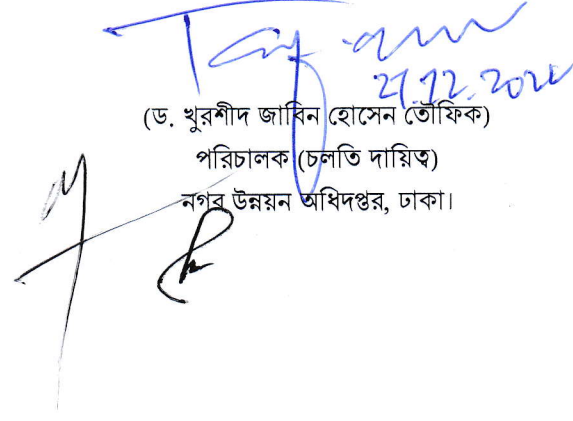 21.12.2020
(ড. খুরশীদ জাবিন হোসেন তৌফিক)
পরিচালক (চলতি দায়িত্ব)
নগর উন্নয়ন অধিদপ্তর, ঢাকা।